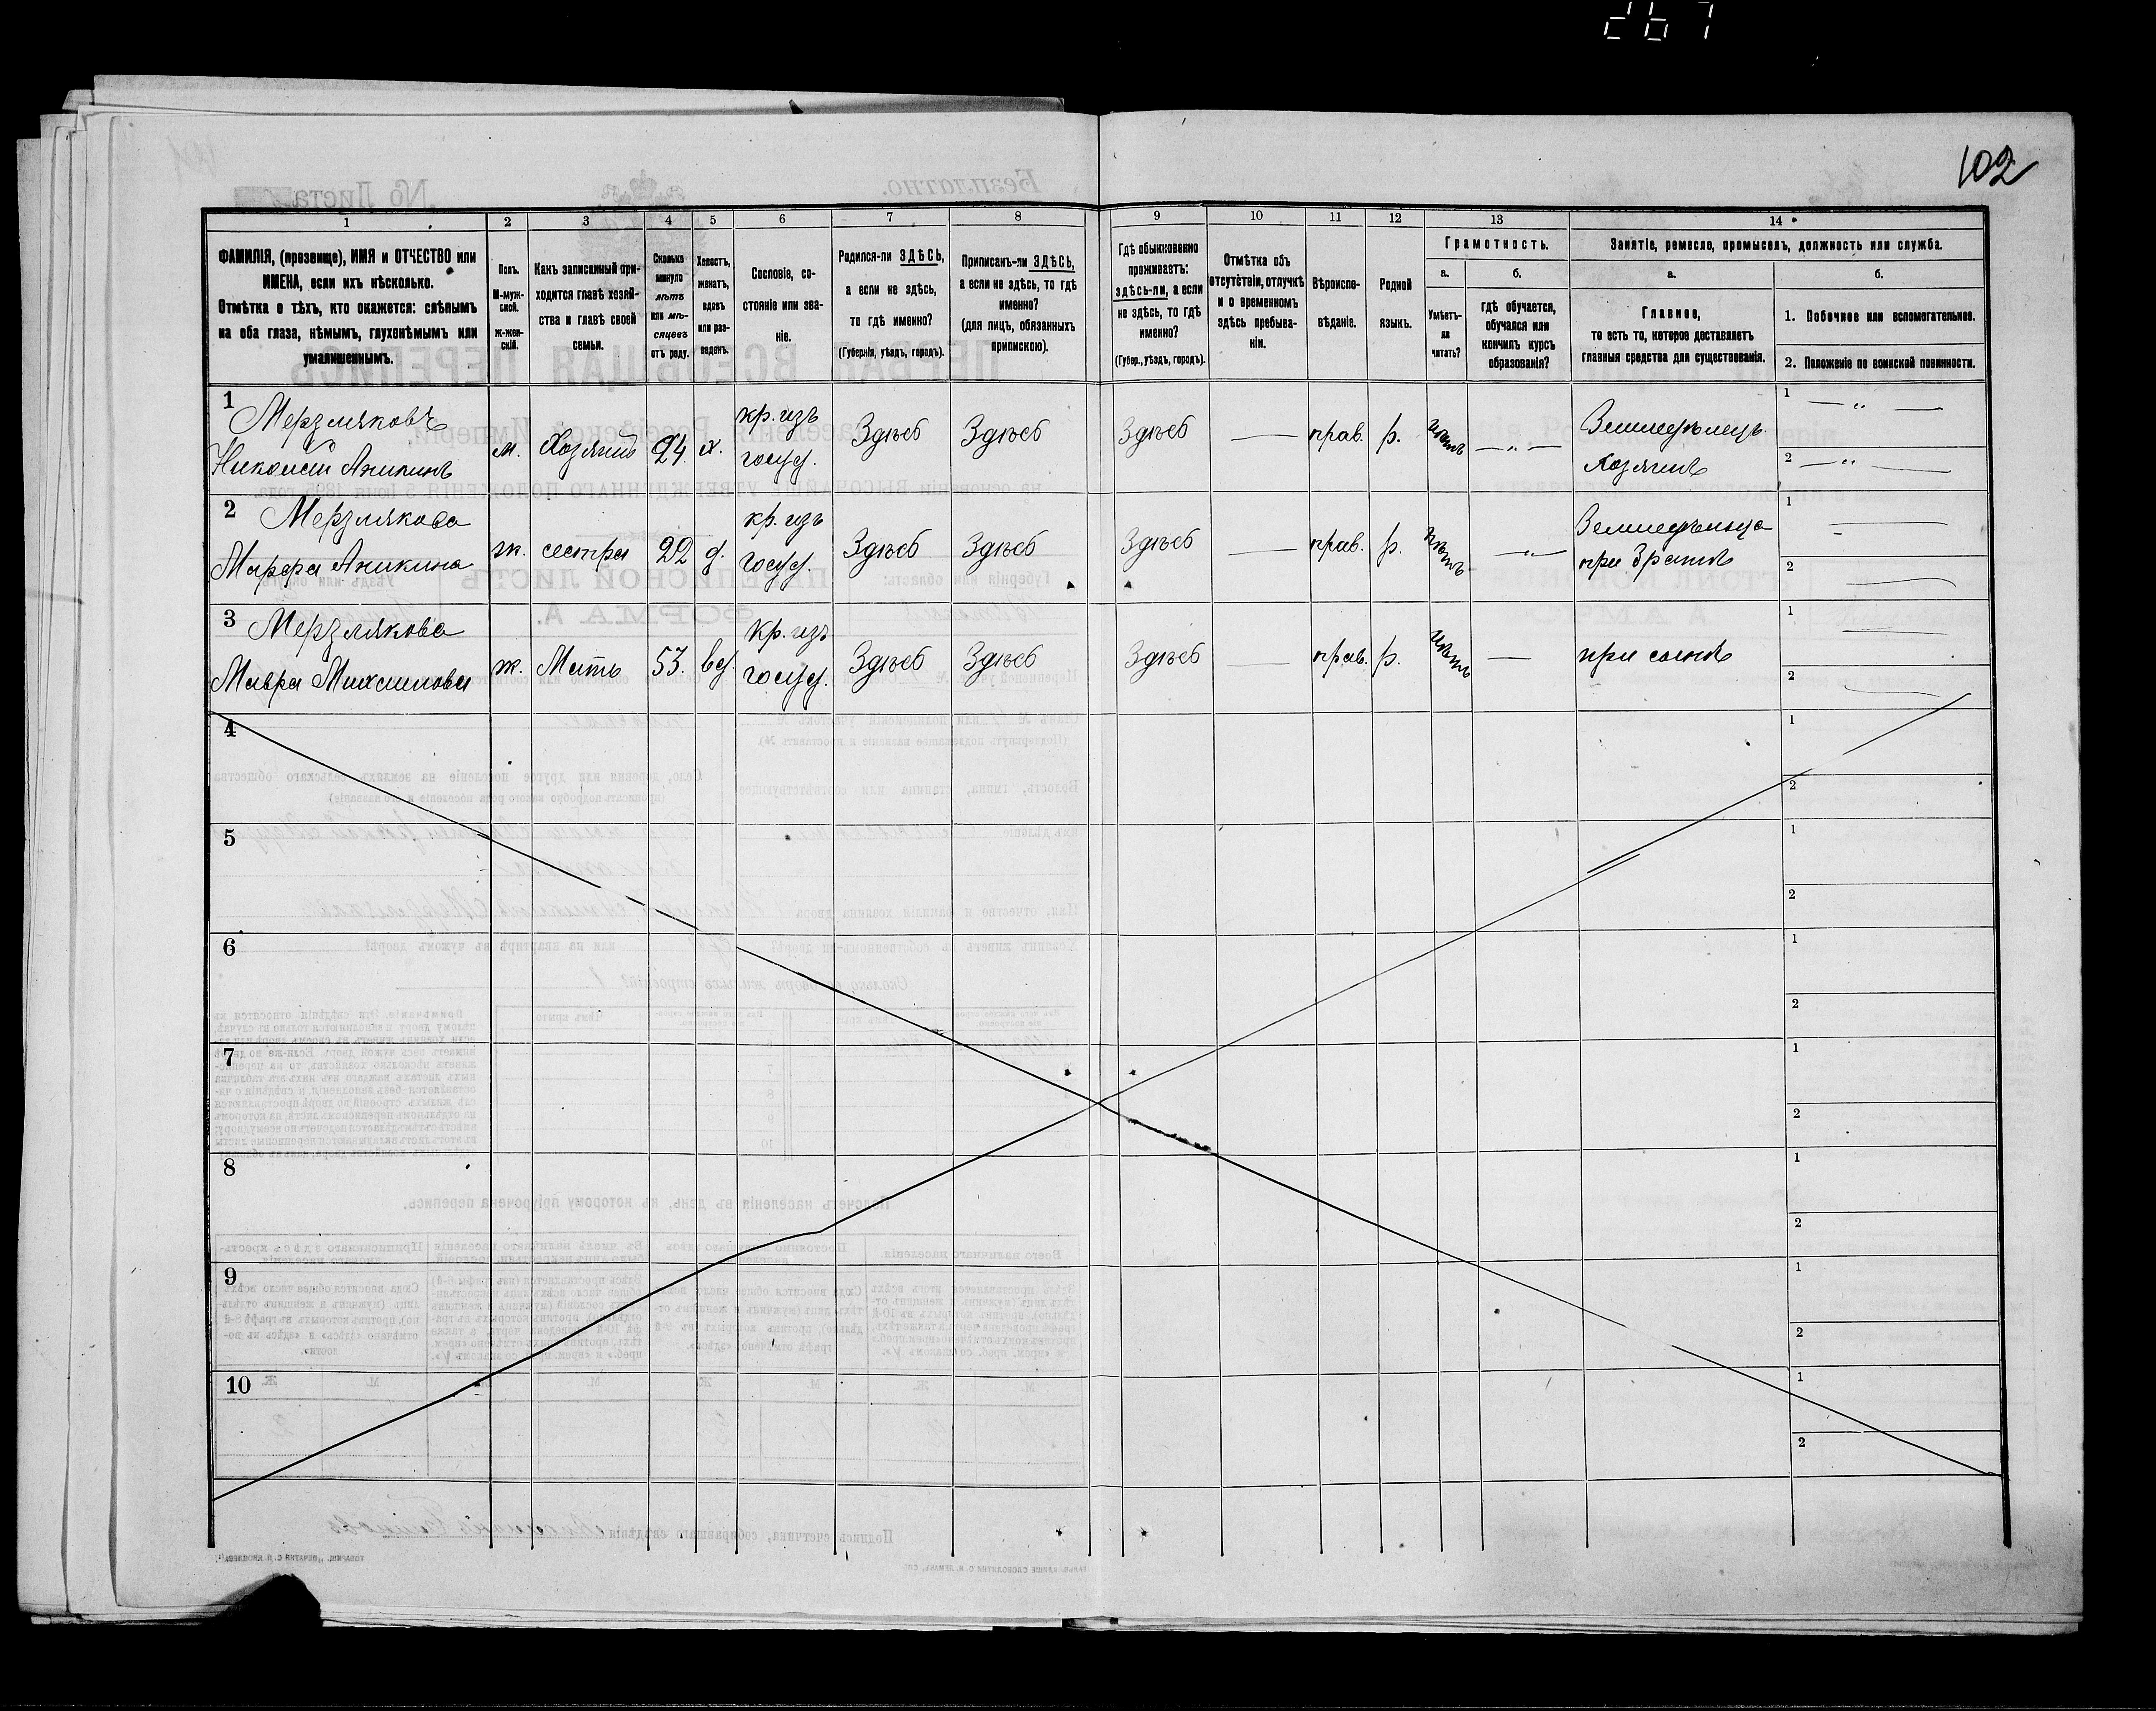 267
102
1
2
3
4
5
6
7
8
9
10
11
12
13
14
ФАМИЛІЯ, (прозвище), ИМЯ и ОТЧЕСТВО или
ИМЕНА, если ихъ нѣсколько.
Отмѣтка о тѣхъ, кто окажется: слѣпымъ
на оба глаза, нѣмымъ, глухонѣмымъ или
умалишеннымъ.
Полъ.
М-муж-
ской.
ж-жен-
скій.
Какъ записанный при-
ходится главѣ хозяй-
ства и главѣ своей
семьи.
Сколько
минуло
лѣтъ
или мѣ-
сяцевъ
отъ роду.
Холостъ,
женатъ,
вдовъ
или раз-
веденъ.
Сословіе, со-
стояніе или зва-
ніе.
Родился-ли ЗДѢСЬ,
а если не здѣсь,
то гдѣ именно?
(Губернія, уѣздъ, городъ).
Приписанъ-ли ЗДѢСЬ,
а если не здѣсь, то гдѣ
именно?
(для лицъ, обязанныхъ
припискою).
Гдѣ обыкновенно
проживаетъ:
здѣсь-ли, а если
не здѣсь, то гдѣ
именно?
(Губер., уѣздъ, городъ).
Отмѣтка объ
отсутствіи, отлучкѣ
и о временномъ
здѣсь пребыва-
ніи.
Вѣроиспо-
вѣданіе.
Родной
языкъ.
Грамотность.
а.
Умѣетъ-
ли
читать?
б.
гдѣ обучается,
обучался или
кончилъ курсъ
образованія?
Занятіе, ремесло, промыселъ, должность или служба.
а.
Главное,
то есть то, которое доставляетъ
главныя средства для существованія.
б.
1. Побочное или вспомогательное.
2. Положеніе по воинской повинности.
1 Мерзляковъ
Николай Аникинъ
м. Хозяинъ 24. х. кр. изъ
госуд. Здѣсь Здѣсь Здѣсь — прав. р. нѣтъ — „ — Земледѣлецъ
хозяинъ
1 — „ —
2 — „ —
2 Мерзлякова
Марфа Аникина
ж. сестра 22 д. кр. изъ
госуд. Здѣсь Здѣсь Здѣсь — прав. р. нѣтъ — „ — Земледѣлица
при братѣ
1 —
2 —
3 Мерзлякова
Мавра Максимова
ж. Мать 53. вд. кр. изъ
госуд. Здѣсь Здѣсь Здѣсь — прав. р. нѣтъ — при сынѣ
1 —
2 —
4
1
2
5
1
2
6
1
2
7
1
2
8
1
2
9
1
2
10
1
2